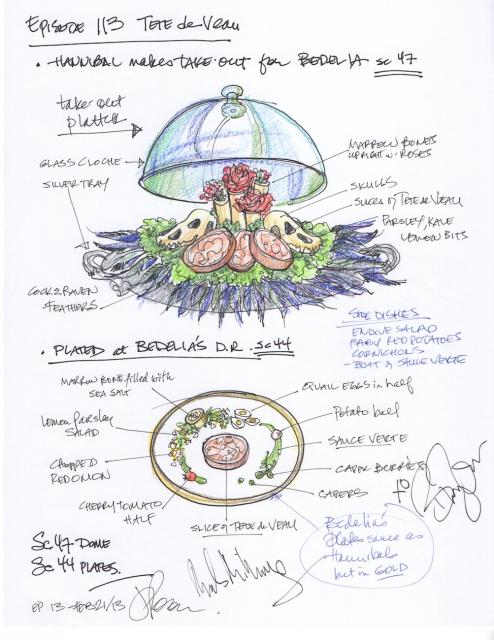 EPISODE 113 TETE de VEAU
• HANNIBAL makes TAKE-OUT for BEDELIA SC 47
take-out
platter
GLASS CLOCHE
SILVER TRAY
COCK & RAVEN
FEATHERS
MARROW BONES
UPRIGHT w. ROSES
SKULLS
SLICES of TETE de VEAU
PARSLEY, KALE
LEMON BITS
SIDE DISHES
ENDIVE SALAD
BABY RED POTATOES
CORNICHONS
- BOAT of SAUCE VERTE
• PLATED at BEDELIA'S D.R. SC 44
MARROW BONE filled with
SEA SALT
Lemon Parsley
SALAD
CHOPPED
RED ONION
CHERRY TOMATO
HALF
SLICE of TETE de VEAU
QUAIL EGGS in half
Potato ball
SAUCE VERTE
CAPER BERRIES
CAPERS
Bedelia's
Plates same as
Hannibals
but in GOLD
SC 47 DOME
SC 44 PLATES.
EP 13 - FEB 21/13